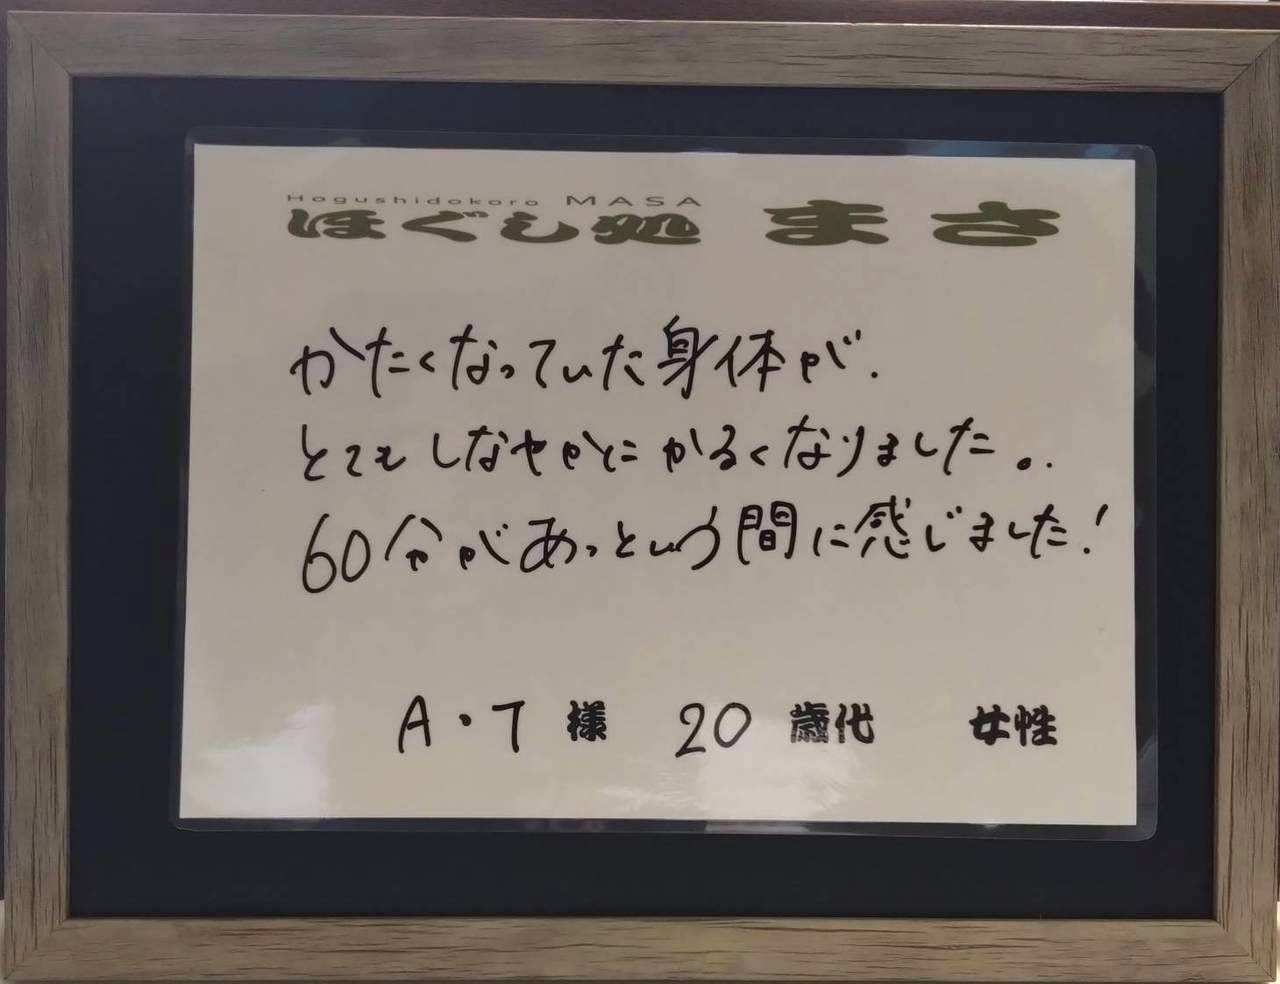 Hogushidokoro MASA
ほぐし処 まさ
かたくなっていた身体が、
とてもしなやかにかるくなりました。
60分があっという間に感じました!
A・T 様 20 歳代 女性